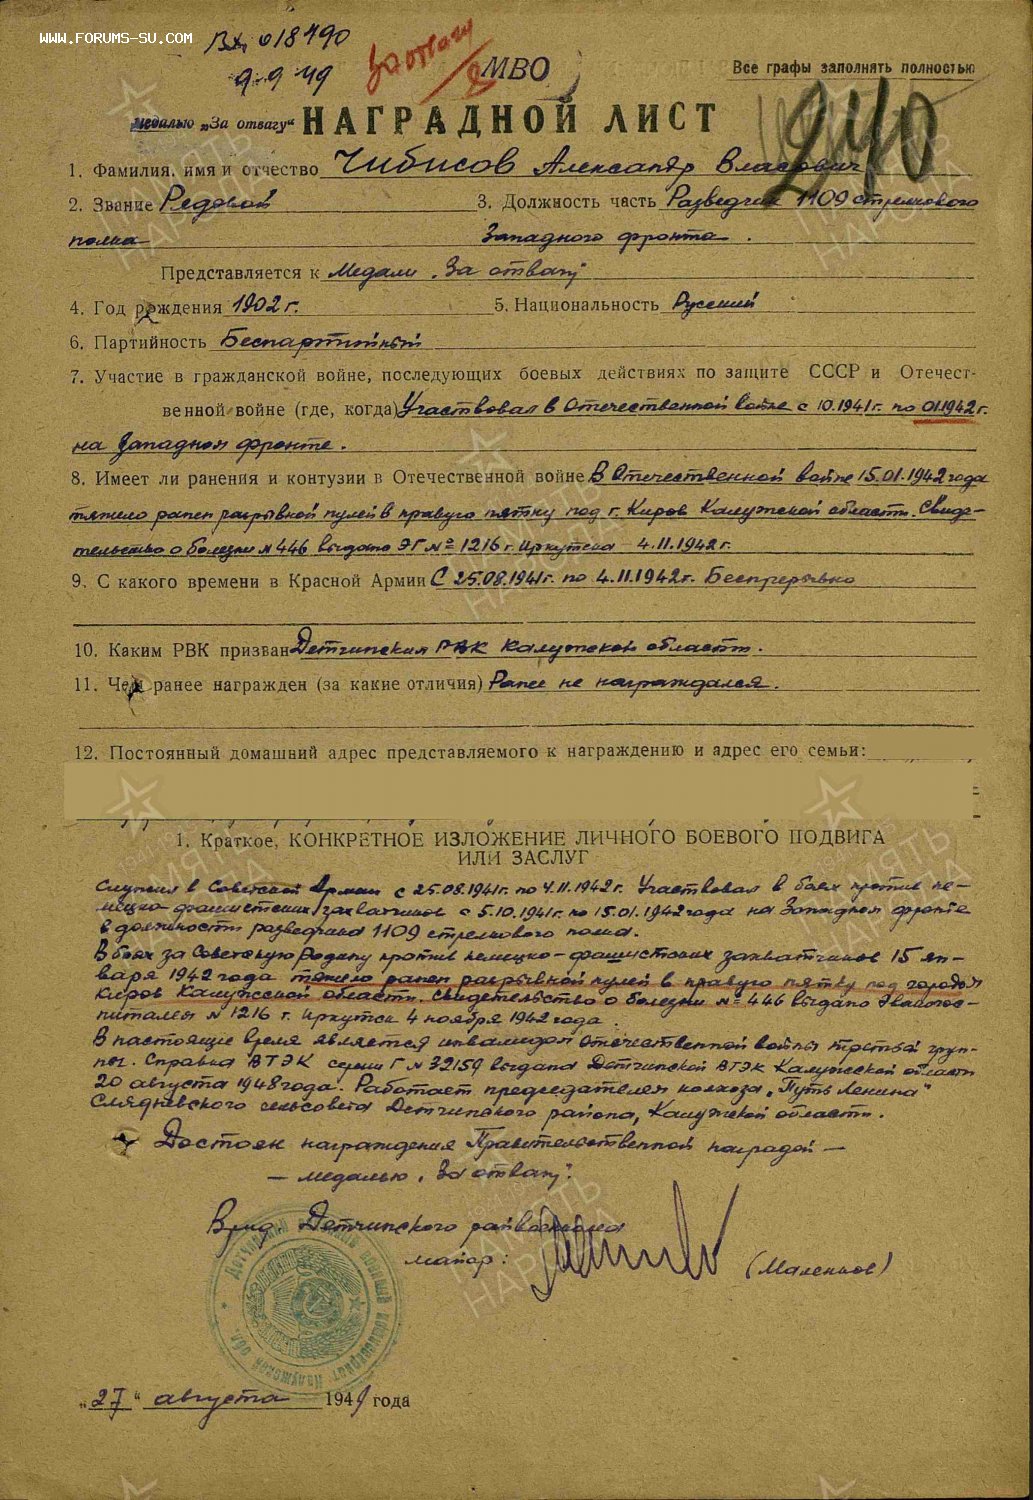 WWW.FORUMS-SU.COM
Вх. 018490
9.9.49
За отвагу
МВО
Все графы заполнять полностью
240
медалью „За отвагу“ НАГРАДНОЙ ЛИСТ
1. Фамилия, имя и отчество Чибисов Александр Власович
2. Звание Редовой 3. Должность часть Разведчик 1109 стрелкового
полка Западного фронта.
Представляется к Медали „За отвагу
4. Год рождения 1902 г. 5. Национальность Русский
6. Партийность Беспартийный
7. Участие в гражданской войне, последующих боевых действиях по защите СССР и Отечест-
венной войне (где, когда) Участвовал в Отечественной войне с 10.1941г. по 01.1942г.
на Западном фронте.
8. Имеет ли ранения и контузии в Отечественной войне В Отечественной войне 15.01.1942 года
тяжело ранен разрывной пулей в правую пятку под г. Киров Калужской области. Свиде-
тельство о болезни № 446 выдано ЭГ № 1216 г. Иркутска 4.11.1942г.
9. С какого времени в Красной Армии С 25.08.1941г. по 4.11.1942г. Беспрерывно
10. Каким РВК призван Детчинским РВК Калужской области.
11. Чем ранее награжден (за какие отличия) Ранее не награждался.
12. Постоянный домашний адрес представляемого к награждению и адрес его семьи:
1. Краткое, КОНКРЕТНОЕ ИЗЛОЖЕНИЕ ЛИЧНОГО БОЕВОГО ПОДВИГА
ИЛИ ЗАСЛУГ
Служил в Советской Армии с 25.08.1941г. по 4.11.1942г. Участвовал в боях против не-
мецко-фашистских захватчиков с 5.10.1941г. по 15.01.1942 года на Западном фронте
в должности разведчика 1109 стрелкового полка.
В боях за Советскую Родину против немецко-фашистских захватчиков 15 ян-
варя 1942 года тяжело ранен разрывной пулей в правую пятку под городом
Киров Калужской области. Свидетельство о болезни № 446 выдано Эвакогос-
питалем № 1216 г. Иркутск 4 ноября 1942 года.
В настоящие время является инвалидом Отечественной войны третьей груп-
пы. Справка ВТЭК серии Г № 32159 выдана Детчинской ВТЭК Калужской области
20 августа 1948 года. Работает председателем колхоза „Путь Ленина“
сельсовета Детчинского района, Калужской области.
Достоин награждения Правительственной наградой —
— медалью „За отвагу“.
Врид. Детчинского райвоенкома
майор: (Маленков)
„27“ августа 1949 года